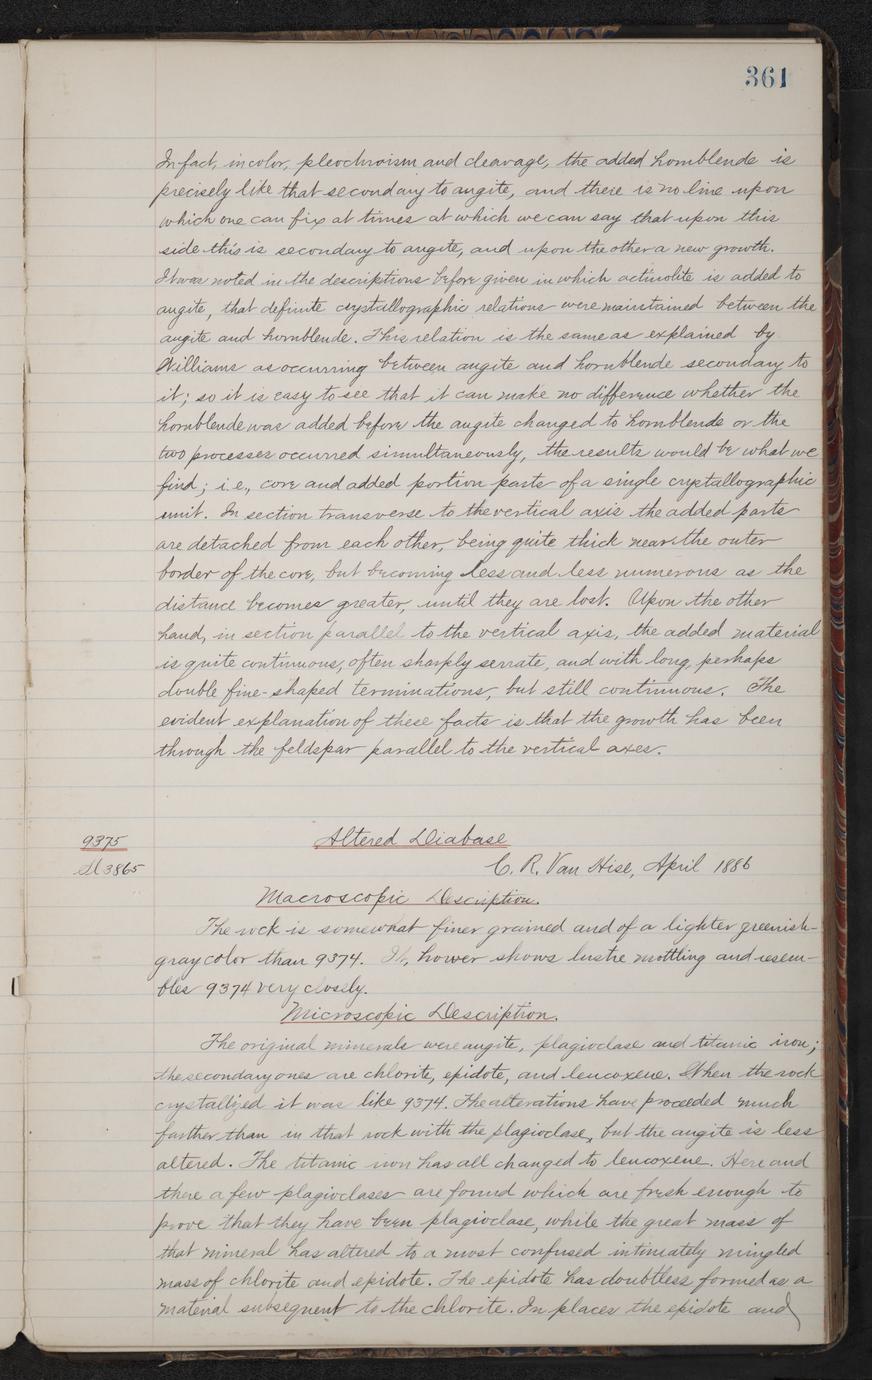 361
In fact, in color, pleochroism and cleavage, the added hornblende is
precisely like that secondary to augite, and there is no line upon
which one can fix at times at which we can say that upon this
side this is secondary to augite, and upon the other a new growth.
It was noted in the descriptions before given in which actinolite is added to
augite, that definite crystallographic relations were maintained between the
augite and hornblende. This relation is the same as explained by
Williams as occurring between augite and hornblende secondary to
it; so it is easy to see that it can make no difference whether the
hornblende was added before the augite changed to hornblende or the
two processes occurred simultaneously, the results would be what we
find; i.e., core and added portion parts of a single crystallographic
unit. In section transverse to the vertical axis the added parts
are detached from each other, being quite thick near the outer
border of the core, but becoming less and less numerous as the
distance becomes greater, until they are lost. Upon the other
hand, in section parallel to the vertical axis, the added material
is quite continuous, often sharply serrate, and with long, perhaps
double fine-shaped terminations, but still continuous. The
evident explanation of these facts is that the growth has been
through the feldspar parallel to the vertical axes.
9375
Sl 3865
Altered Diabase
C. R. Van Hise, April 1886
Macroscopic Description.
The rock is somewhat finer grained and of a lighter greenish-
gray color than 9374. It, hower shows lustre mottling and resem-
bles 9374 very closely.
Microscopic Description.
The original minerals were augite, plagioclase and titanic iron;
the secondary ones are chlorite, epidote, and leucoxene. When the rock
crystallized it was like 9374. The alterations have proceeded much
farther than in that rock with the plagioclase, but the augite is less
altered. The titanic iron has all changed to leucoxene. Here and
there a few plagioclases are found which are fresh enough to
prove that they have been plagioclase, while the great mass of
that mineral has altered to a most confused intimately mingled
mass of chlorite and epidote. The epidote has doubtless formed as a
material subsequent to the chlorite. In places the epidote and